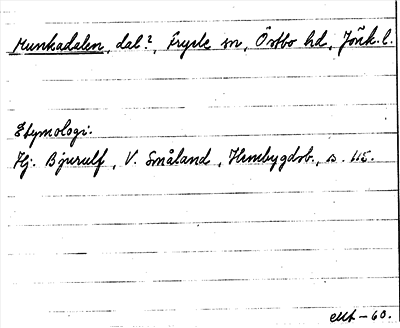 Munkadalen, dal?, Fryele sn, Östbo hd, Jönk. l.
Etymologi:
Hj. Bjurulf, V. Småland, Hembygdsb., s. 115.